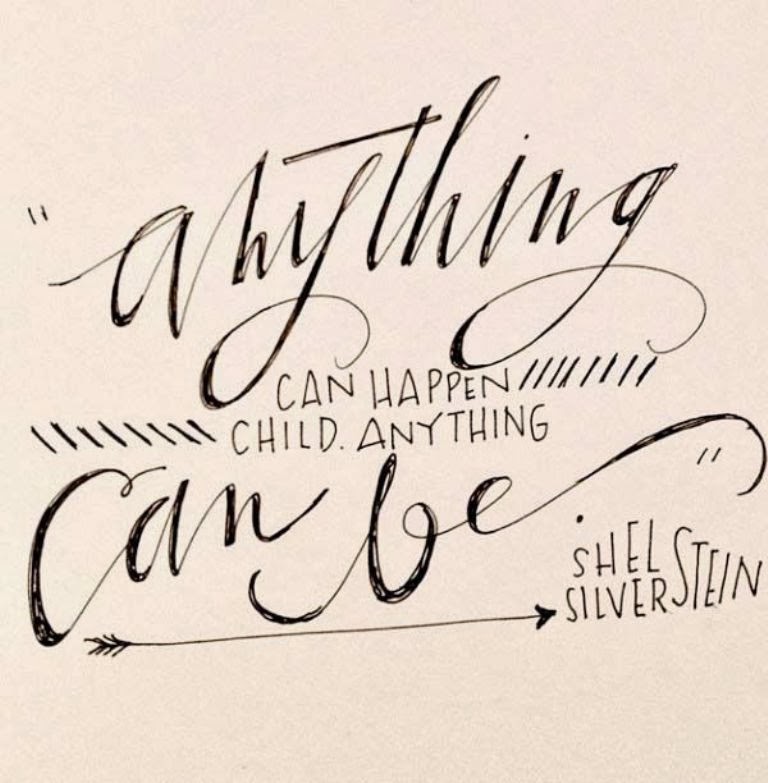 "anything
CAN HAPPEN
CHILD. ANYTHING
can be."
SHEL
SILVERSTEIN